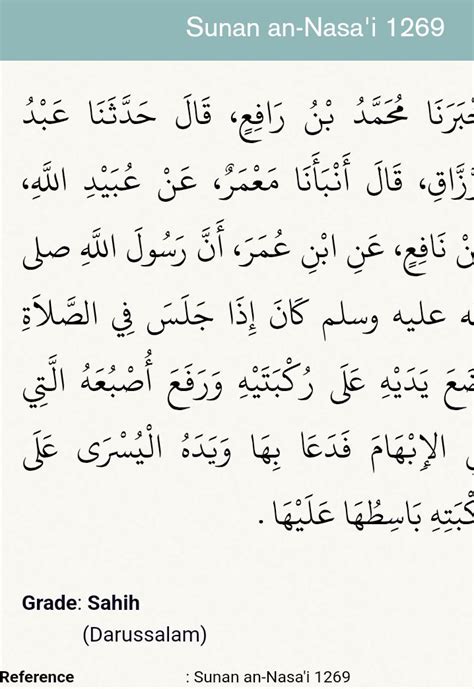 Sunan an-Nasa'i 1269
خْبَرَنَا مُحَمَّدُ بْنُ رَافِعٍ، قَالَ حَدَّثَنَا عَبْدُ
زَّاقِ، قَالَ أَنْبَأَنَا مَعْمَرٌ، عَنْ عُبَيْدِ اللَّهِ،
نْ نَافِعٍ، عَنِ ابْنِ عُمَرَ، أَنَّ رَسُولَ اللَّهِ صلى
ه عليه وسلم كَانَ إِذَا جَلَسَ فِي الصَّلاَةِ
ضَعَ يَدَيْهِ عَلَى رُكْبَتَيْهِ وَرَفَعَ أُصْبُعَهُ الَّتِي
الإِبْهَامَ فَدَعَا بِهَا وَيَدَهُ الْيُسْرَى عَلَى
كْبَتِهِ بَاسِطُهَا عَلَيْهَا .
Grade: Sahih
(Darussalam)
Reference : Sunan an-Nasa'i 1269